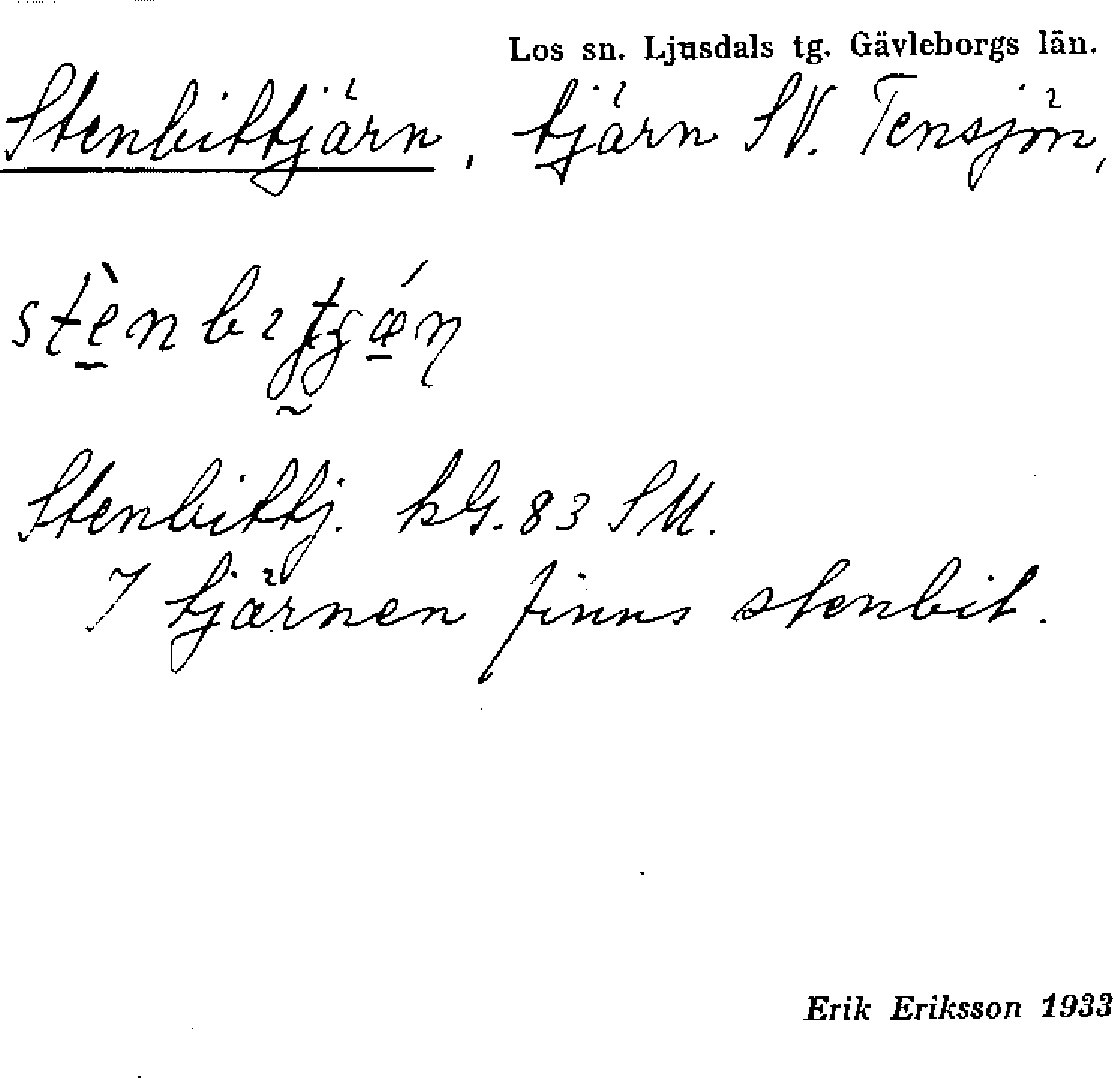 Los sn. Ljusdals tg. Gävleborgs län.
Stenbittjärn, tjärn SV. Tensjön,
Stenbittj. kG. 83 SM.
I tjärnen finns stenbit.
Erik Eriksson 1933